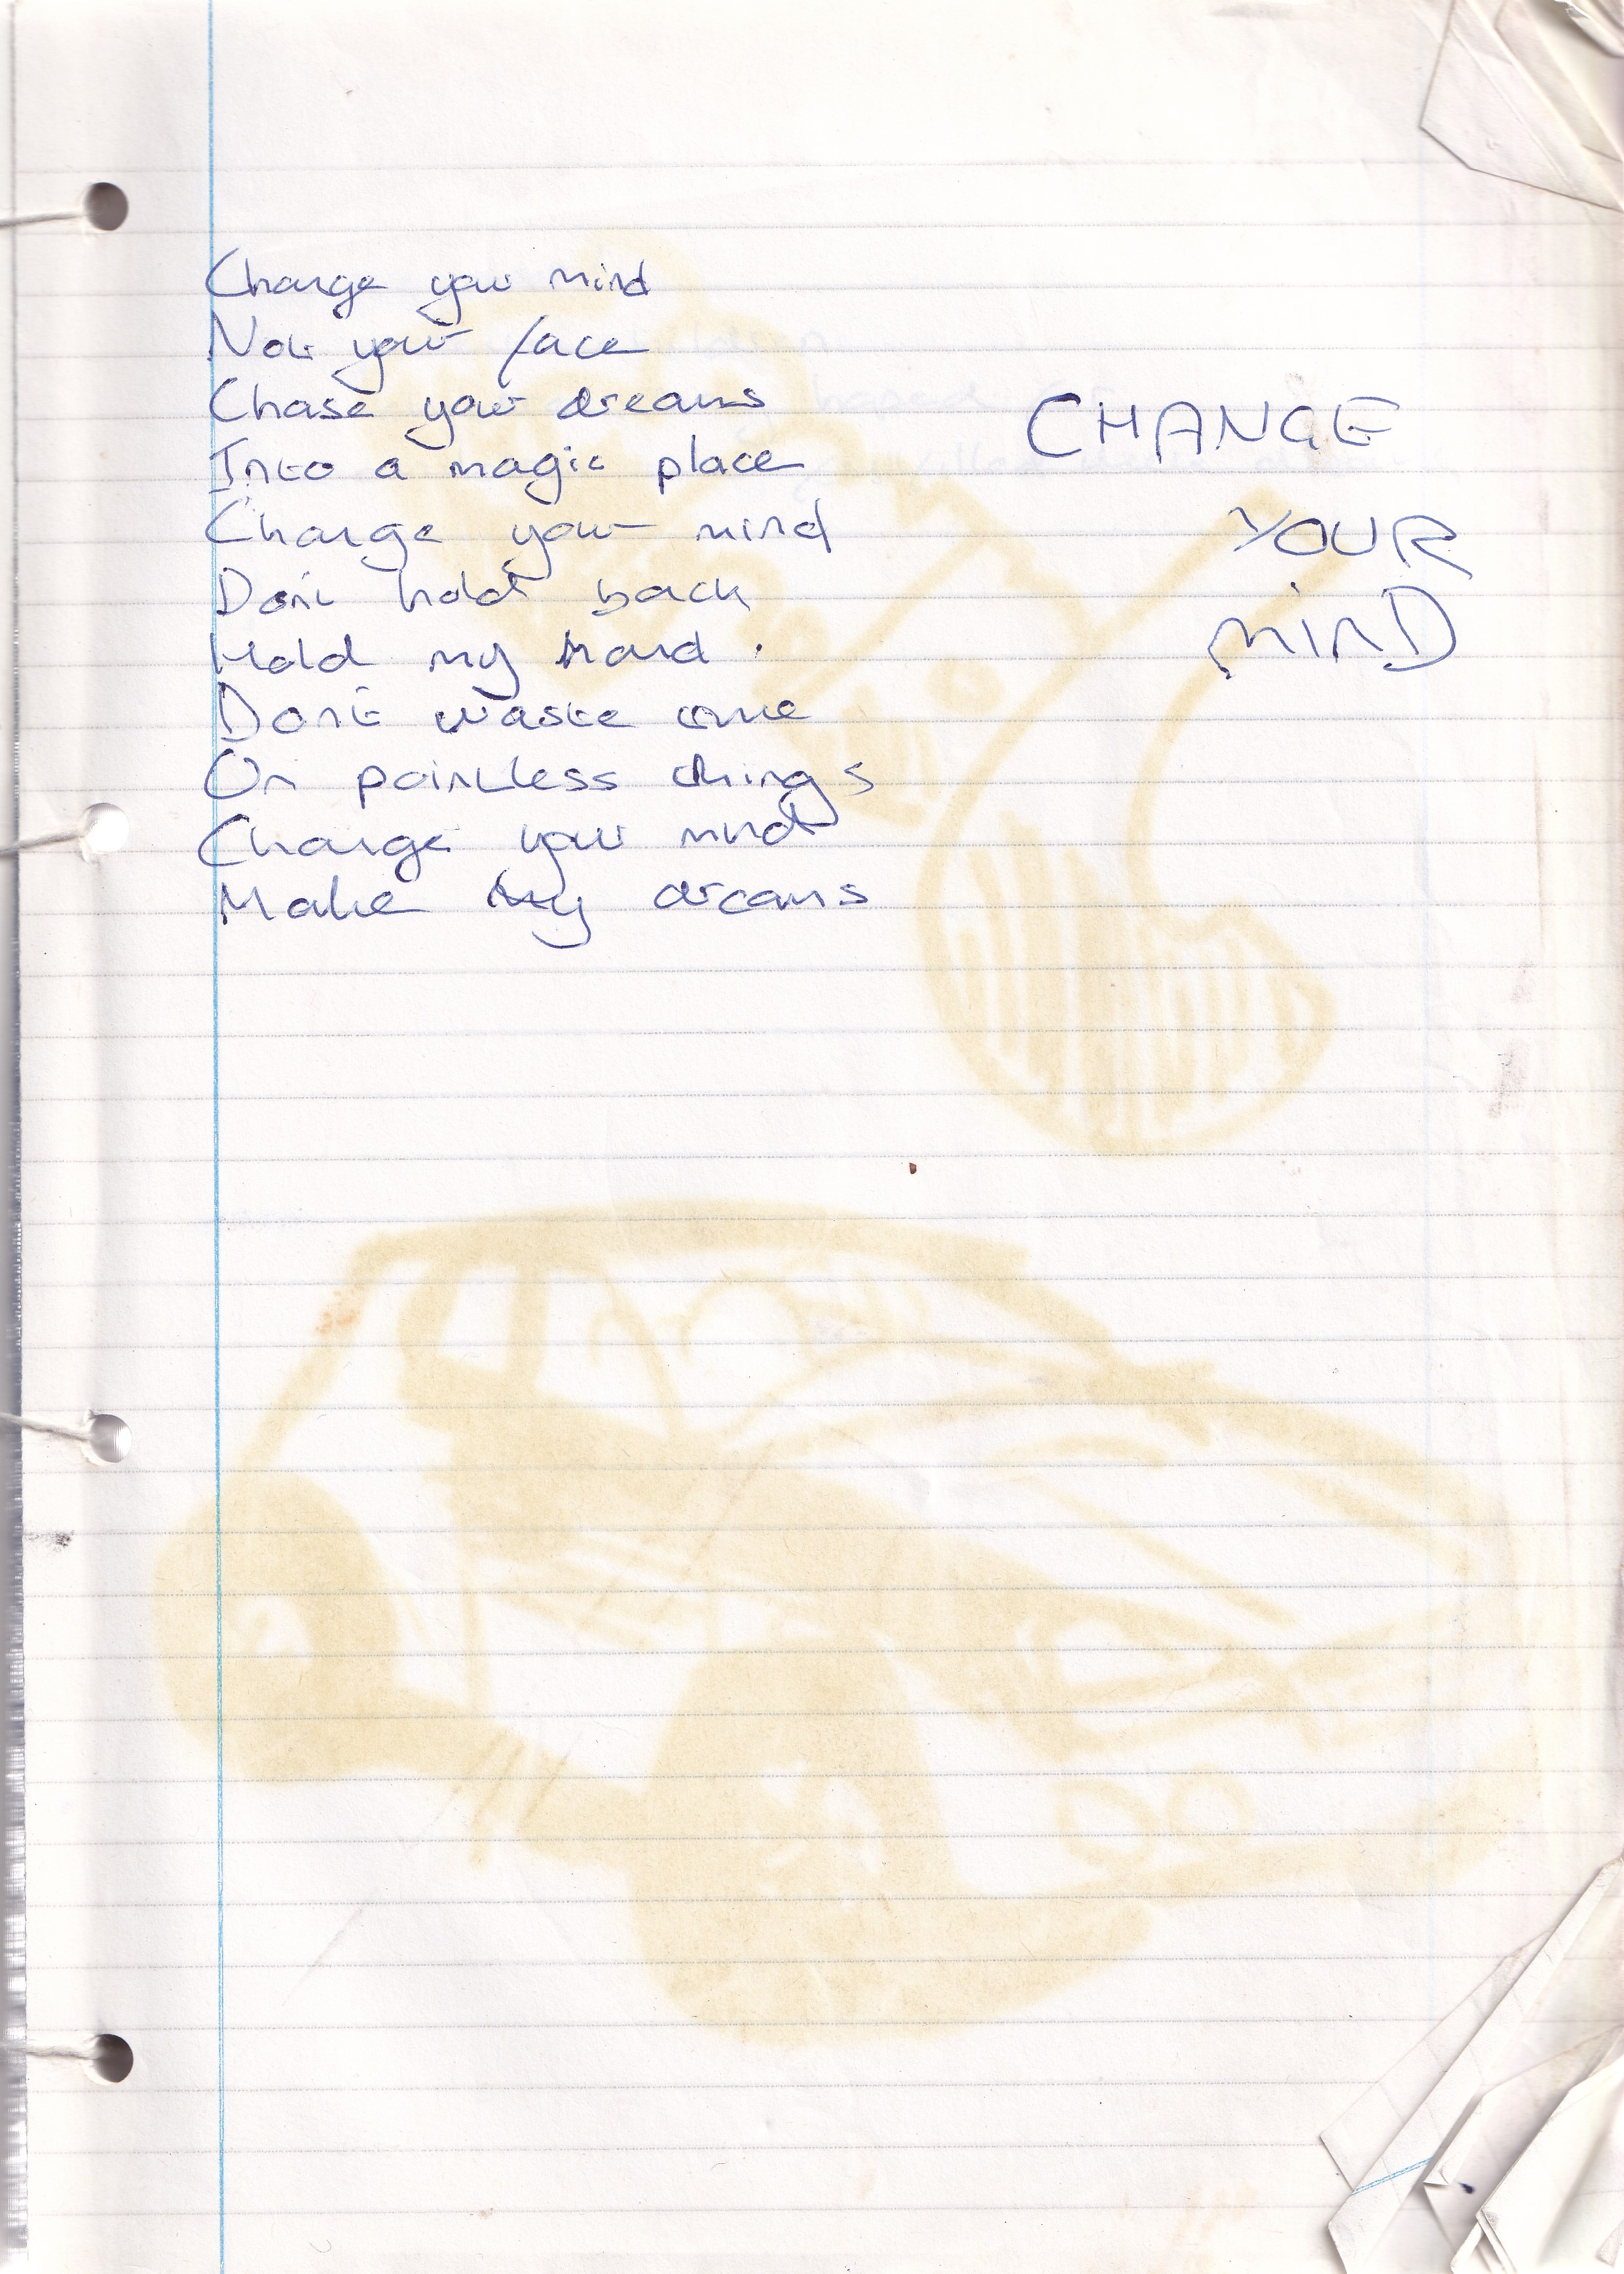 Change your mind
Not your face
Chase your dreams
Into a magic place
Change your mind
Don't hold back
Hold my hand.
Don't waste time
On pointless things
Change your mind
Make my dreams
CHANGE
YOUR
MIND